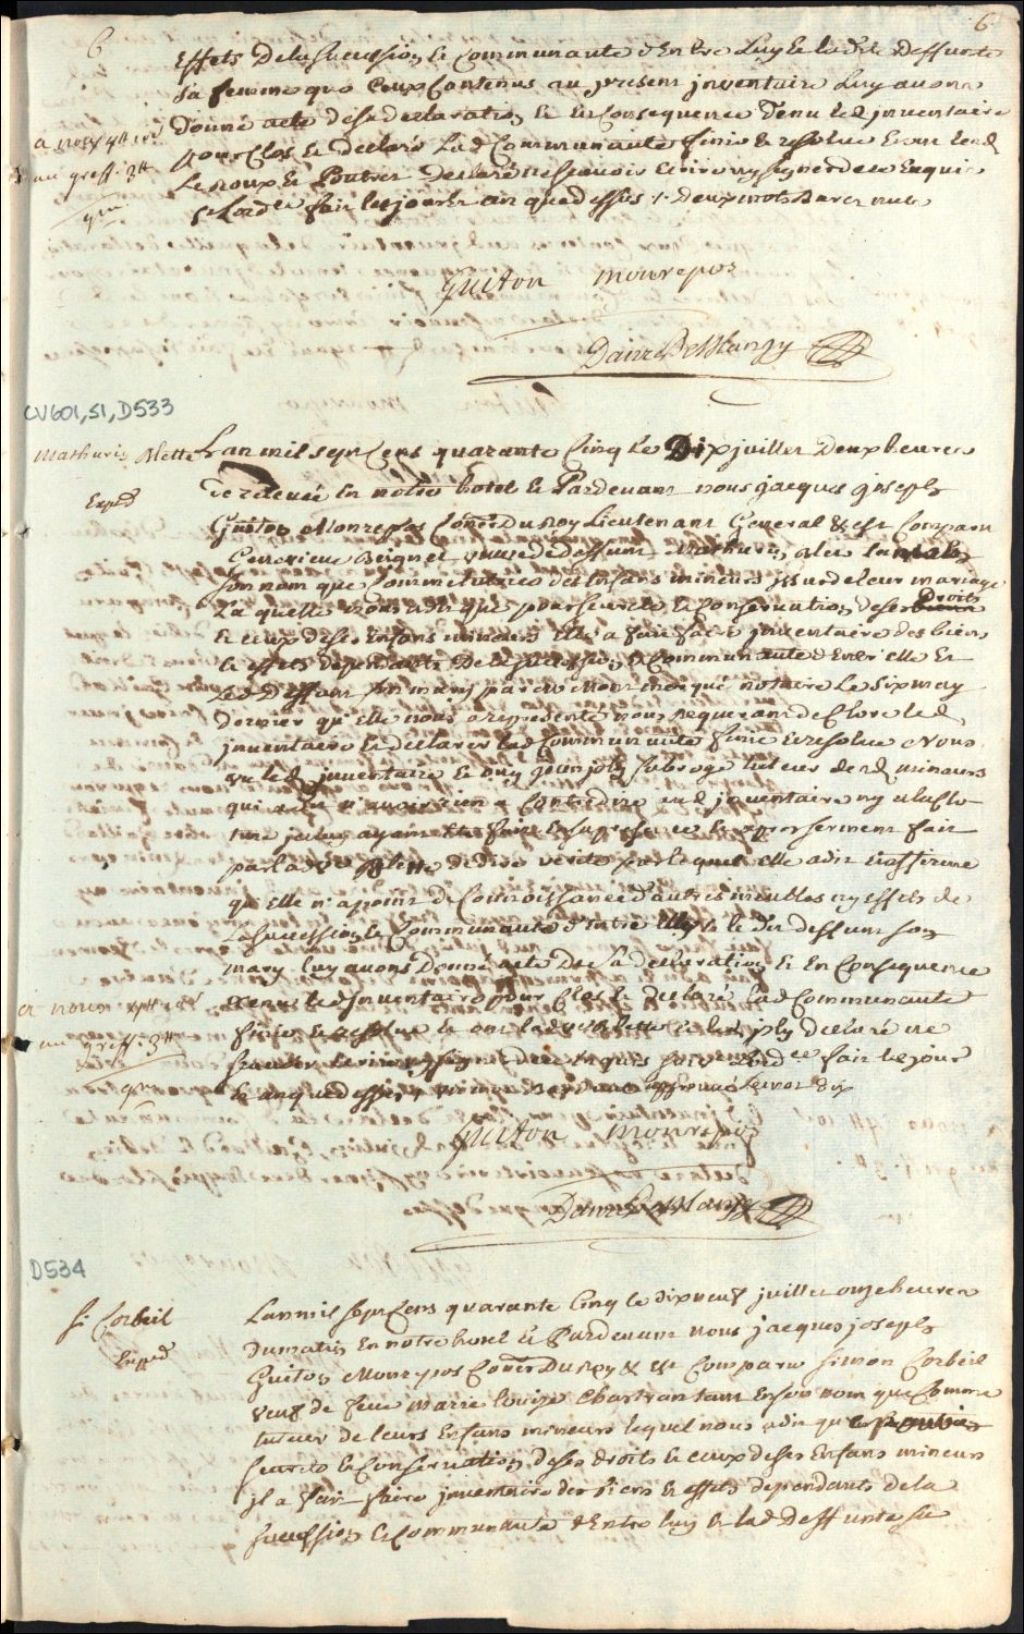 6 6
Effets De la sucession & communauté d'Entre Luy & ladite Deffunte
sa femme que ceux contenus au present inventaire Luy avons
Donné acte de sa declaration & En Consequence tenu led inventaire
a nous 4tt
pour Clos & declaré Lad Communauté finie & resolue & ont led
au greff. 3tt
Leroux & declaré ne scavoir Ecrire ny signer de ce Enquis
fait les jour & an que dessus deux mots Barez nuls
Guiton Monrepos
Danre DeBlanzy
CV601,S1,D533
Mathurin Alette
Lan mil sept Cens quarante Cinq le Dix juillet Deux heures
Exped
de relevée En notre hotel & Pardevant nous jacques joseph
Guiton Monrepos Coner Du Roy Lieutenant General & est Comparu
Genevieve Beignet veuve de deffunt Mathurin
son nom que Comme tutrice des Enfans mineurs issus de leur mariage
Laquelle nous a dit que pour seureté & Conservation de ses droits
& ceux de ses Enfans mineurs Elle a fait faire inventaire des biens
& effets dependants De la sucession & Communauté d'Entr'elle &
Led Deffunt son mary par notaire Le six may
Dernier qu'elle nous a representé nous requerant de Clore led
inventaire & declarer lad Communauté finie & resolue Nous
vu led inventaire & ouy jean joly subrogé tuteur desd mineurs
qui a dit n'avoir rien a Contredire aud inventaire ny a la Clo-
ture jceluy ayant été fait En sa presence & apres serment fait
par lad ve Alette de dire verité par lequel elle a dit & affirmé
qu'elle n'a point de Connoissance d'autres meubles ny effets de
La sucession & Communauté d'Entre Elle & le dit deffunt son
mary luy avons Donné acte De sa declaration & En Consequence
a nous
tenu led Inventaire pour Clos & declaré lad Communauté
au greff. 3tt
finie & resolue & ont lad ve Alette & led joly declaré ne
scavoir Ecrire ny signer de ce Enquis fait le jour
& an que dessus approuvé le mot dix
Guiton Monrepos
Danre DeBlanzy
D534
S. Corbeil
Lan mil sept Cens quarante Cinq le dix neuf juillet onze heures
Exped
Du matin En notre hotel & Pardevant nous jacques joseph
Guiton Monrepos Coner Du Roy & est Comparu Simon Corbeil
veuf de feue Marie Louise Chartran tant En son nom que Comme
tuteur de leurs Enfans mineurs lequel nous a dit que pour
seureté & Conservation de ses droits & ceux de ses Enfans mineurs
jl a fait faire jnventaire des biens & effets dependants de la
sucession & communauté d'Entre luy & lad Deffunte sa